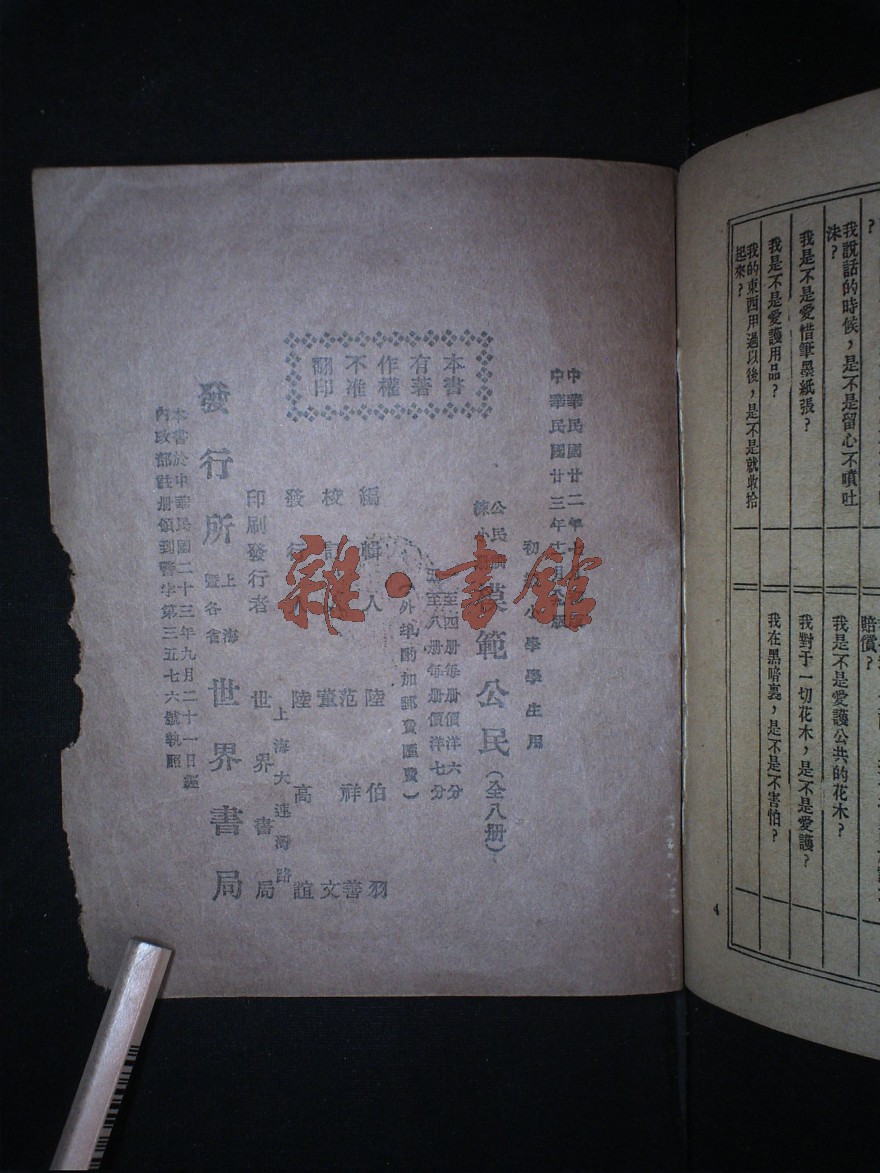 ?
我說話的時候，是不是留心不噴吐
沬？
我是不是愛惜筆墨紙張？
我是不是愛護用品？
我的東西用過以後，是不是就收拾
起來？
賠償？
我是不是愛護公共的花木？
我對于一切花木，是不是愛護？
我在黑暗裏，是不是不害怕？
4
中華民國廿二年
中華民國廿三年
初 小學學生用
公民
練小
範公民（全八册）
至四册每册價洋六分
至八册每册價洋七分
外埠酌加郵費匯費）
本書
有著
作權
不准
翻印
編輯人 陸伯羽
校 范祥善
董文
發行 陸高誼
印刷發行者 世界書局
上海大連灣路
發行所 上海暨各省 世界書局
本書於中華民國二十三年九月二十一日經
內政部註册領到警字第三五七六號執照
雜·書館